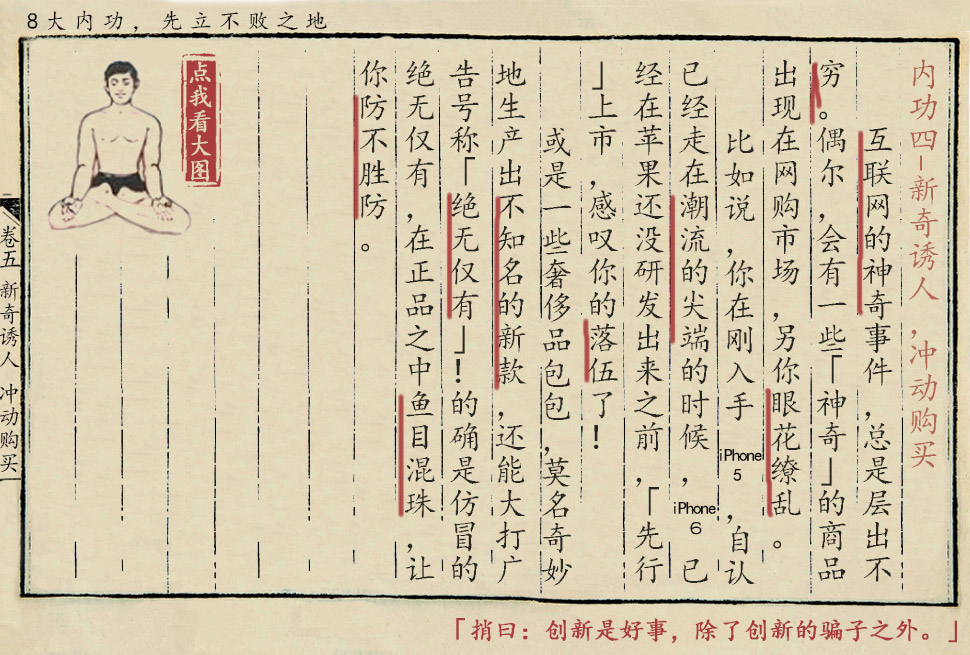 8大内功，先立不败之地
内功四-新奇诱人，冲动购买
互联网的神奇事件，总是层出不
穷。偶尔，会有一些「神奇」的商品
出现在网购市场，另你眼花缭乱。
比如说，你在刚入手iPhone5，自认
已经走在潮流的尖端的时候，iPhone6已
经在苹果还没研发出来之前，「先行
」上市，感叹你的落伍了！
或是一些奢侈品包包，莫名奇妙
地生产出不知名的新款，还能大打广
告号称「绝无仅有」！的确是仿冒的
绝无仅有，在正品之中鱼目混珠，让
你防不胜防。
点我看大图
卷五 新奇诱人 冲动购买
「捎曰：创新是好事，除了创新的骗子之外。」